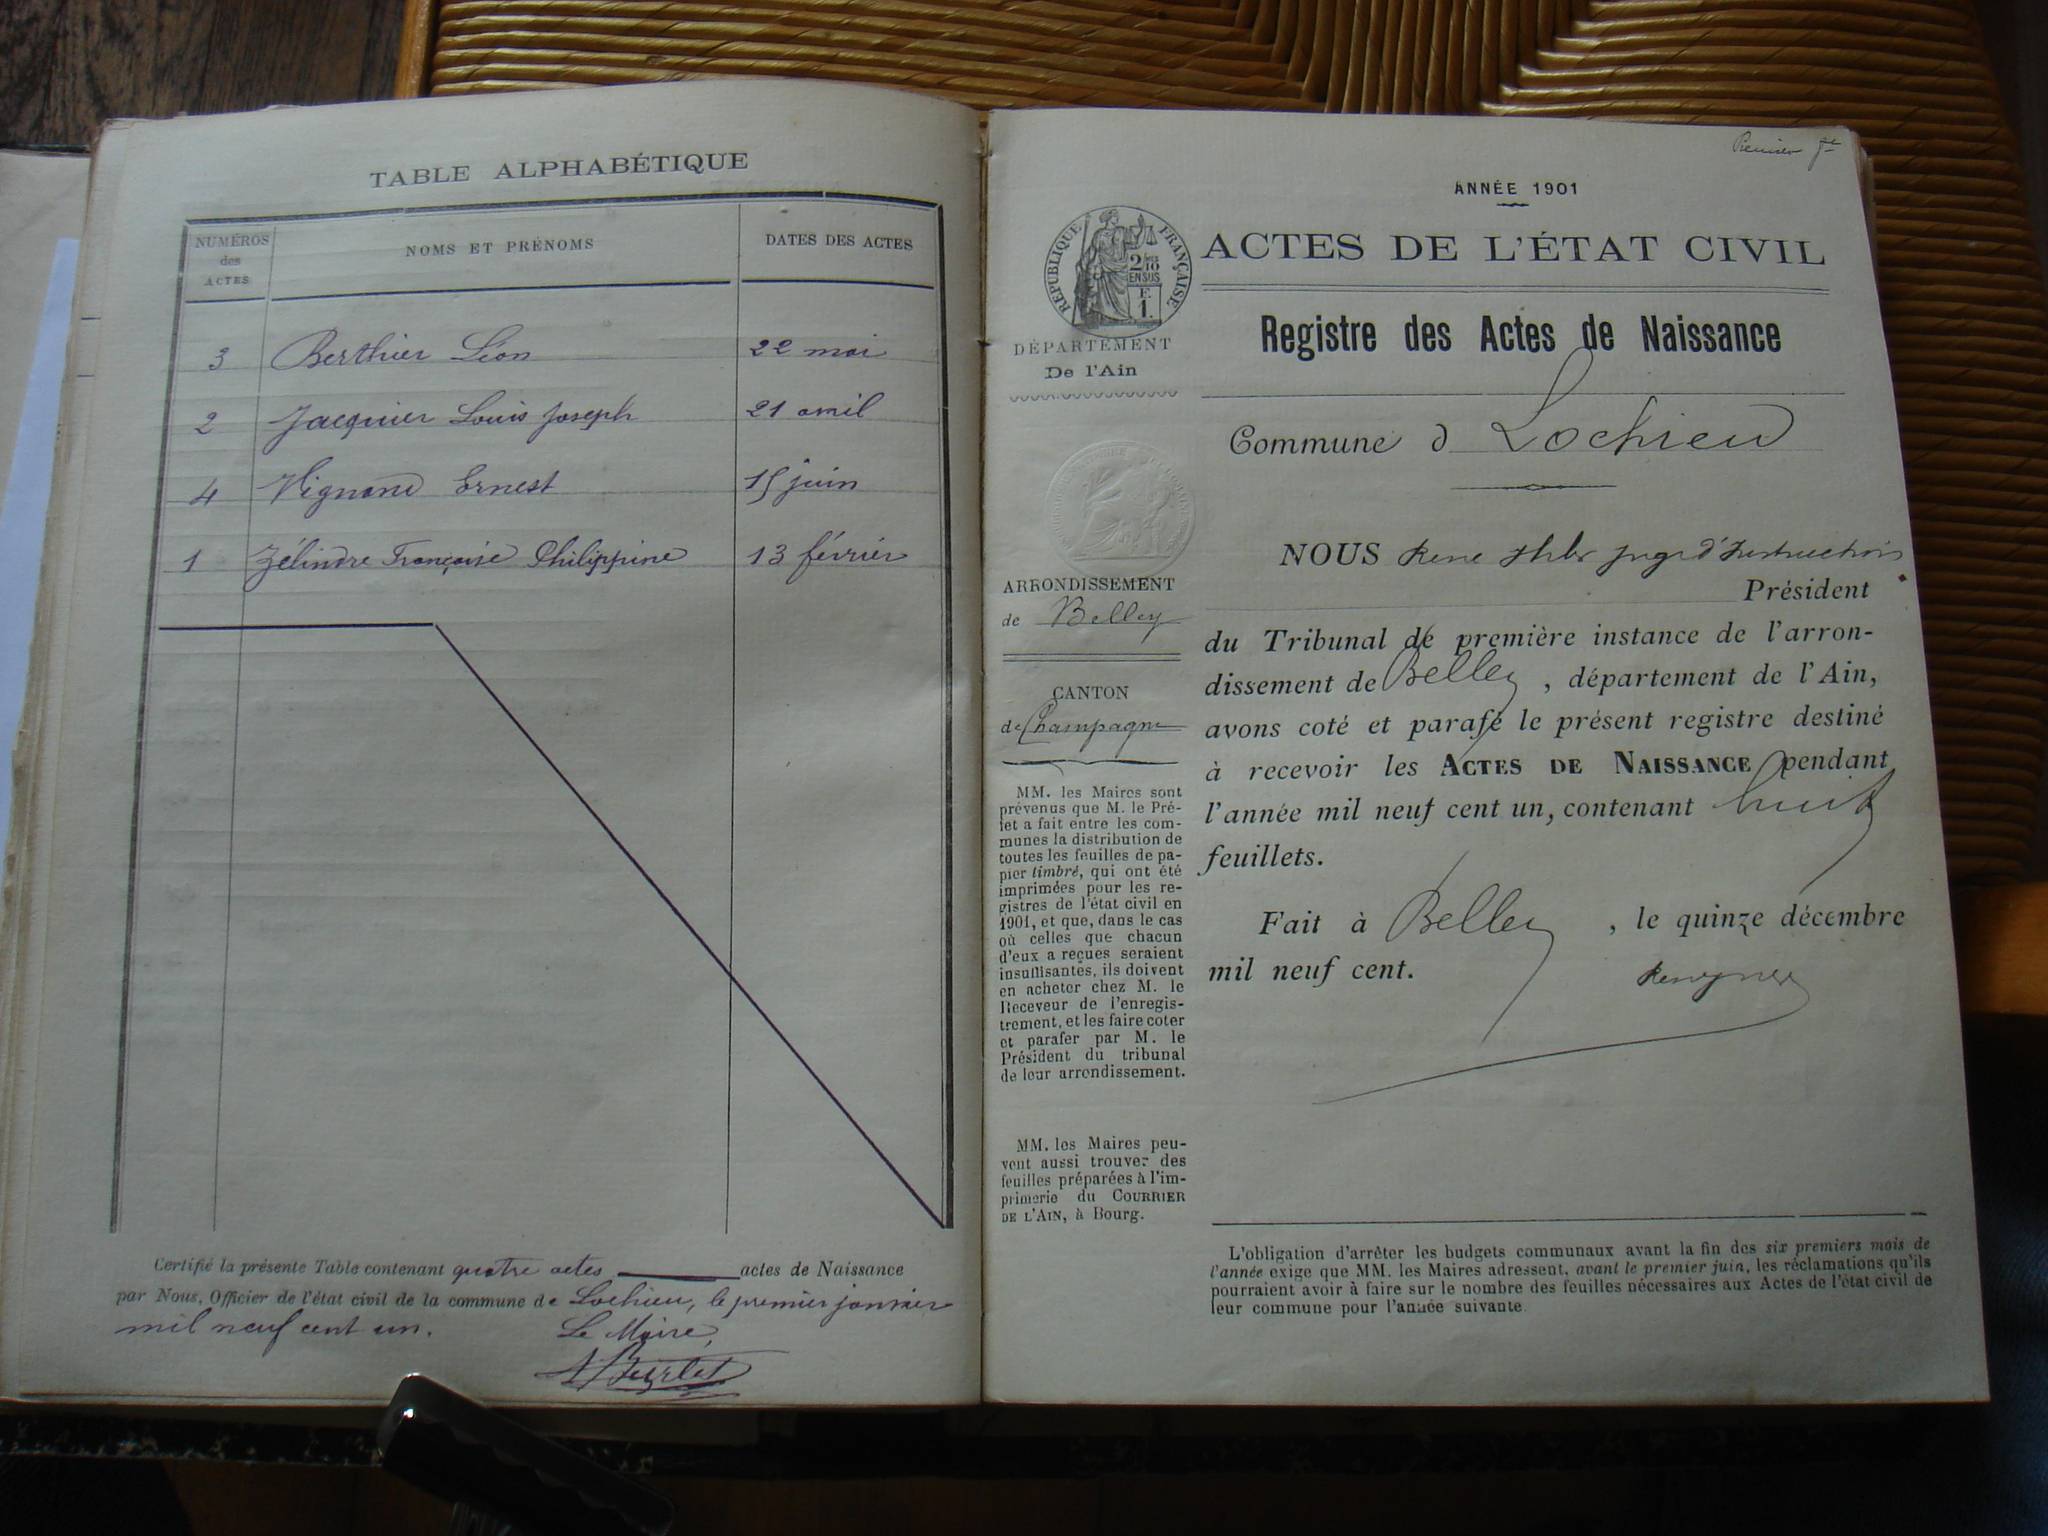 TABLE ALPHABÉTIQUE
NUMÉROS
des
ACTES
NOMS ET PRÉNOMS
DATES DES ACTES
3 Berthier Léon 22 mai
2 Jacquier Louis Joseph 21 avril
4 Vignand Ernest 15 juin
1 Zélindre Françoise Philippine 13 février
Certifié la présente Table contenant quatre actes actes de Naissance
par Nous, Officier de l'état civil de la commune de Lochieu, le premier janvier
mil neuf cent un.
Le Maire,
Premier
ANNÉE 1901
ACTES DE L'ÉTAT CIVIL
RÉPUBLIQUE FRANÇAISE
2/10
EN SUS
E.
1.
DÉPARTEMENT
De l'Ain
Registre des Actes de Naissance
Commune d Lochieu
ARRONDISSEMENT
de Belley
CANTON
de Champagne
MM. les Maires sont
prévenus que M. le Pré-
fet a fait entre les com-
munes la distribution de
toutes les feuilles de pa-
pier timbré, qui ont été
imprimées pour les re-
gistres de l'état civil en
1901, et que, dans le cas
où celles que chacun
d'eux a reçues seraient
insuffisantes, ils doivent
en acheter chez M. le
Receveur de l'enregis-
trement, et les faire coter
et parafer par M. le
Président du tribunal
de leur arrondissement.
MM. les Maires peu-
vent aussi trouver des
feuilles préparées à l'im-
primerie du COURRIER
DE L'AIN, à Bourg.
NOUS René juge d'Instruction
Président
du Tribunal de première instance de l'arron-
dissement de Belley, département de l'Ain,
avons coté et parafé le présent registre destiné
à recevoir les ACTES DE NAISSANCE pendant
l'année mil neuf cent un, contenant huit
feuillets.
Fait à Belley, le quinze décembre
mil neuf cent.
L'obligation d'arrêter les budgets communaux avant la fin des six premiers mois de
l'année exige que MM. les Maires adressent, avant le premier juin, les réclamations qu'ils
pourraient avoir à faire sur le nombre des feuilles nécessaires aux Actes de l'état civil de
leur commune pour l'année suivante.